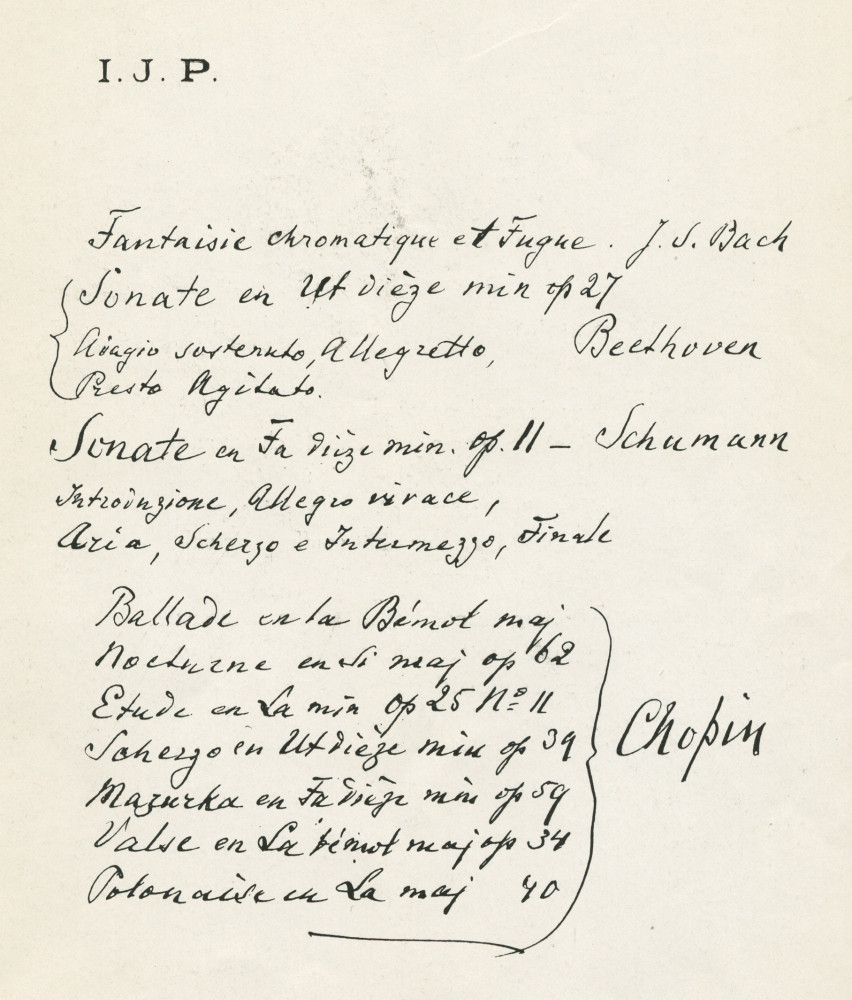 I. J. P.
Fantaisie chromatique et Fugue. J. S. Bach
Sonate en Ut dièze min op 27
Adagio sostenuto, Allegretto, Beethoven
Presto Agitato.
Sonate en Fa dièze min. op. 11 – Schumann
Introduzione, Allegro vivace,
Aria, Scherzo e Intermezzo, Finale
Ballade en la Bémol maj
Nocturne en Si maj op 62
Etude en La min op 25 No 11
Scherzo en Ut dièze min op 39
Chopin
Mazurka en Fa dièze min op 59
Valse en La bémol maj op 34
Polonaise en La maj 40